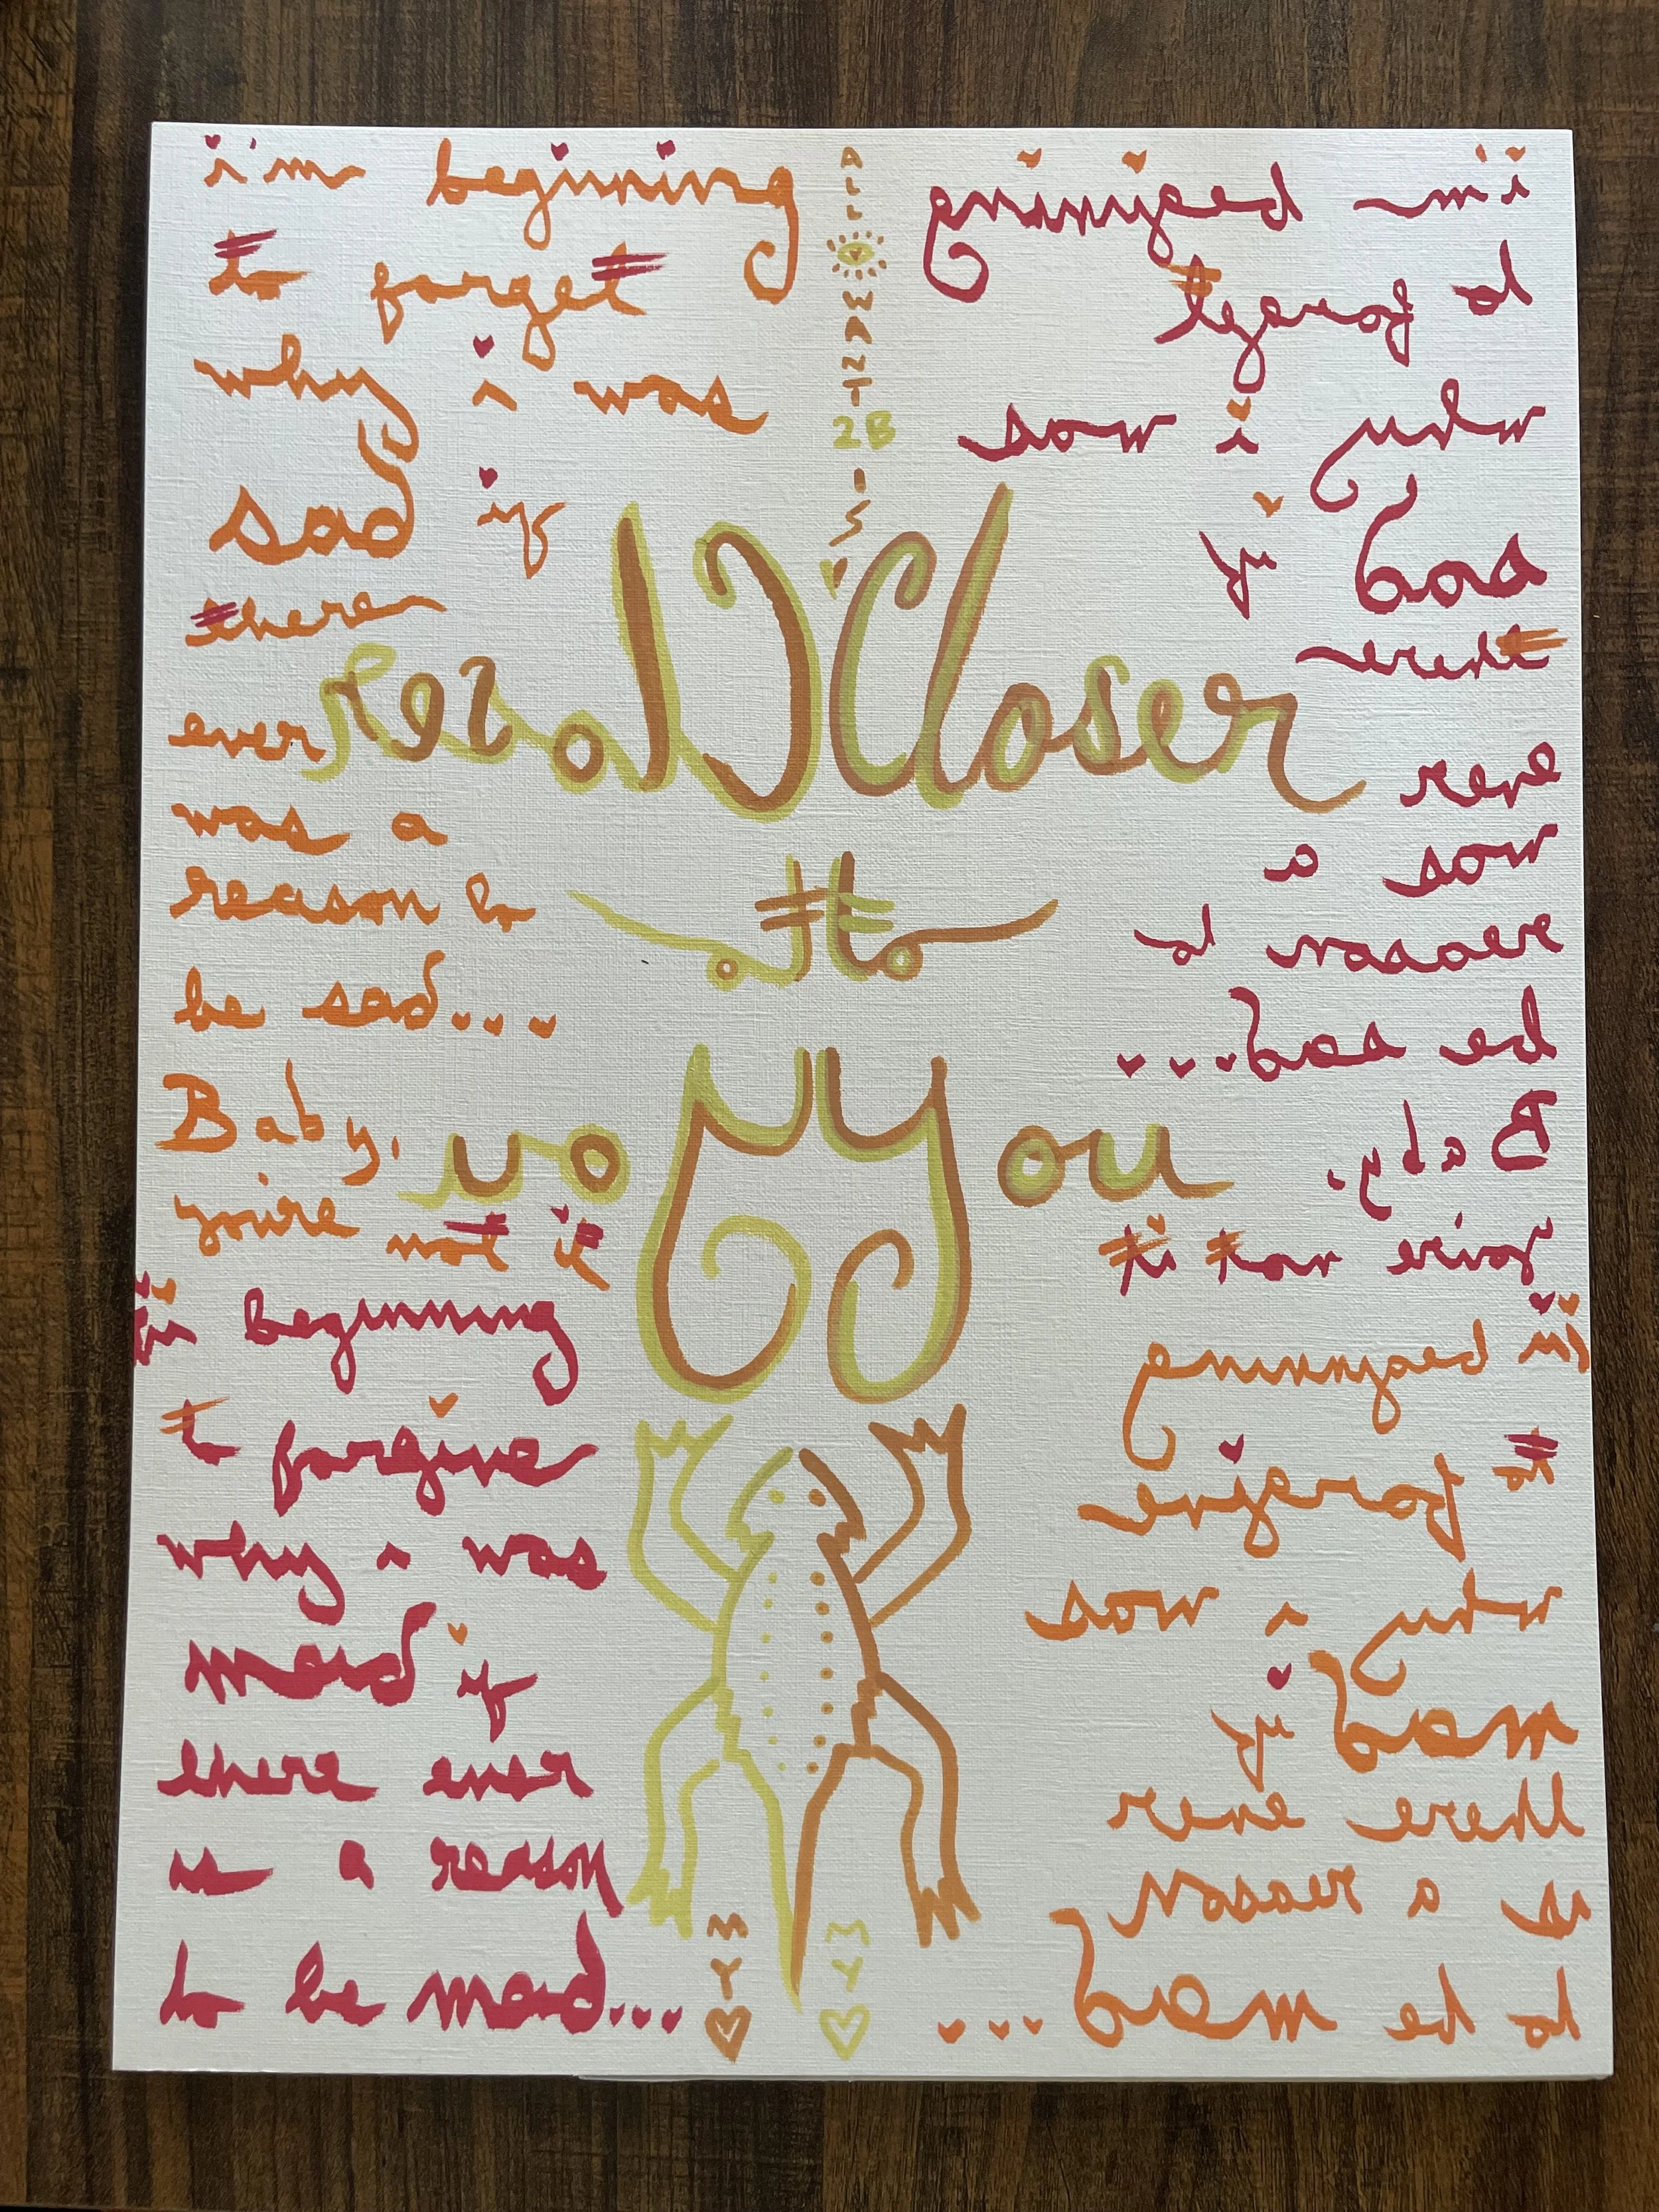 i'm beginning
to forget
why i was
sad if
there
ever
was a
reason to
be sad...
Baby,
you're not it
i'm beginning
to forgive
why i was
mad if
there ever
is a reason
to be mad...
ALL
I
WANT
2B
IS
Closer
to
You
MY
MY
i'm beginning
to forget
why i was
sad if
there
ever
was a
reason to
be sad...
Baby,
you're not it
i'm beginning
to forgive
why i was
mad if
there ever
is a reason
to be mad...